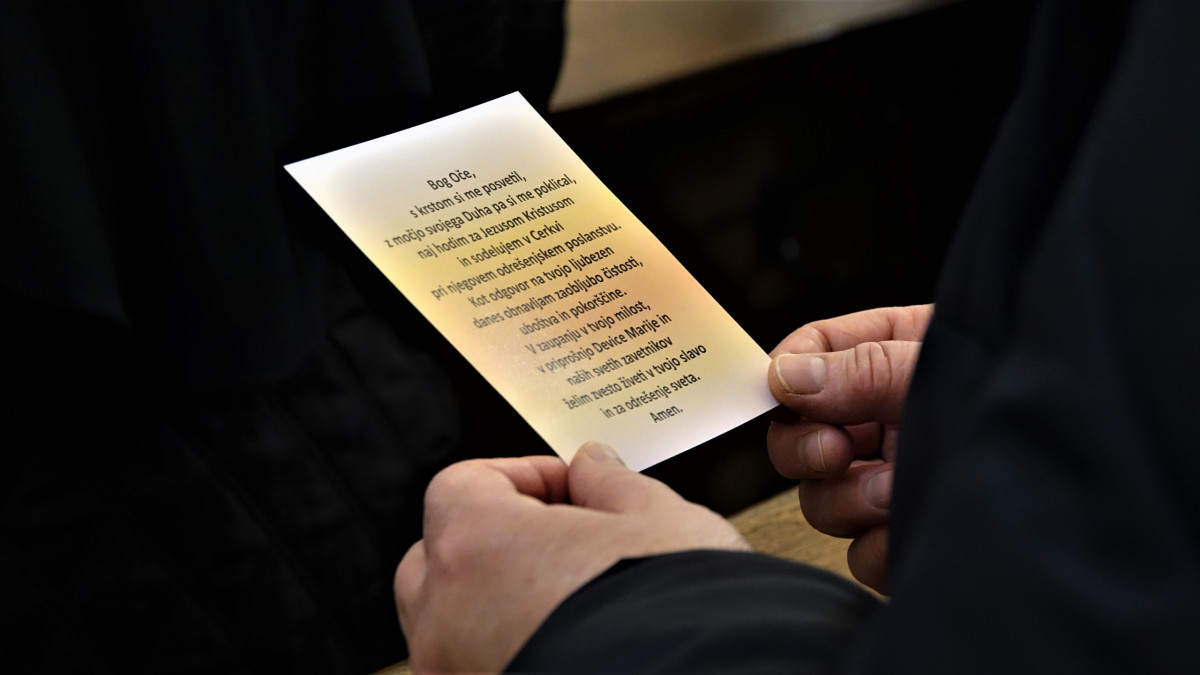 Bog Oče,
s krstom si me posvetil,
z močjo svojega Duha pa si me poklical,
naj hodim za Jezusom Kristusom
in sodelujem v Cerkvi
pri njegovem odrešenjskem poslanstvu.
Kot odgovor na tvojo ljubezen
danes obnavljam zaobljubo čistosti,
uboštva in pokorščine.
V zaupanju v tvojo milost,
v priprošnjo Device Marije in
naših svetih zavetnikov
želim zvesto živeti v tvojo slavo
in za odrešenje sveta.
Amen.